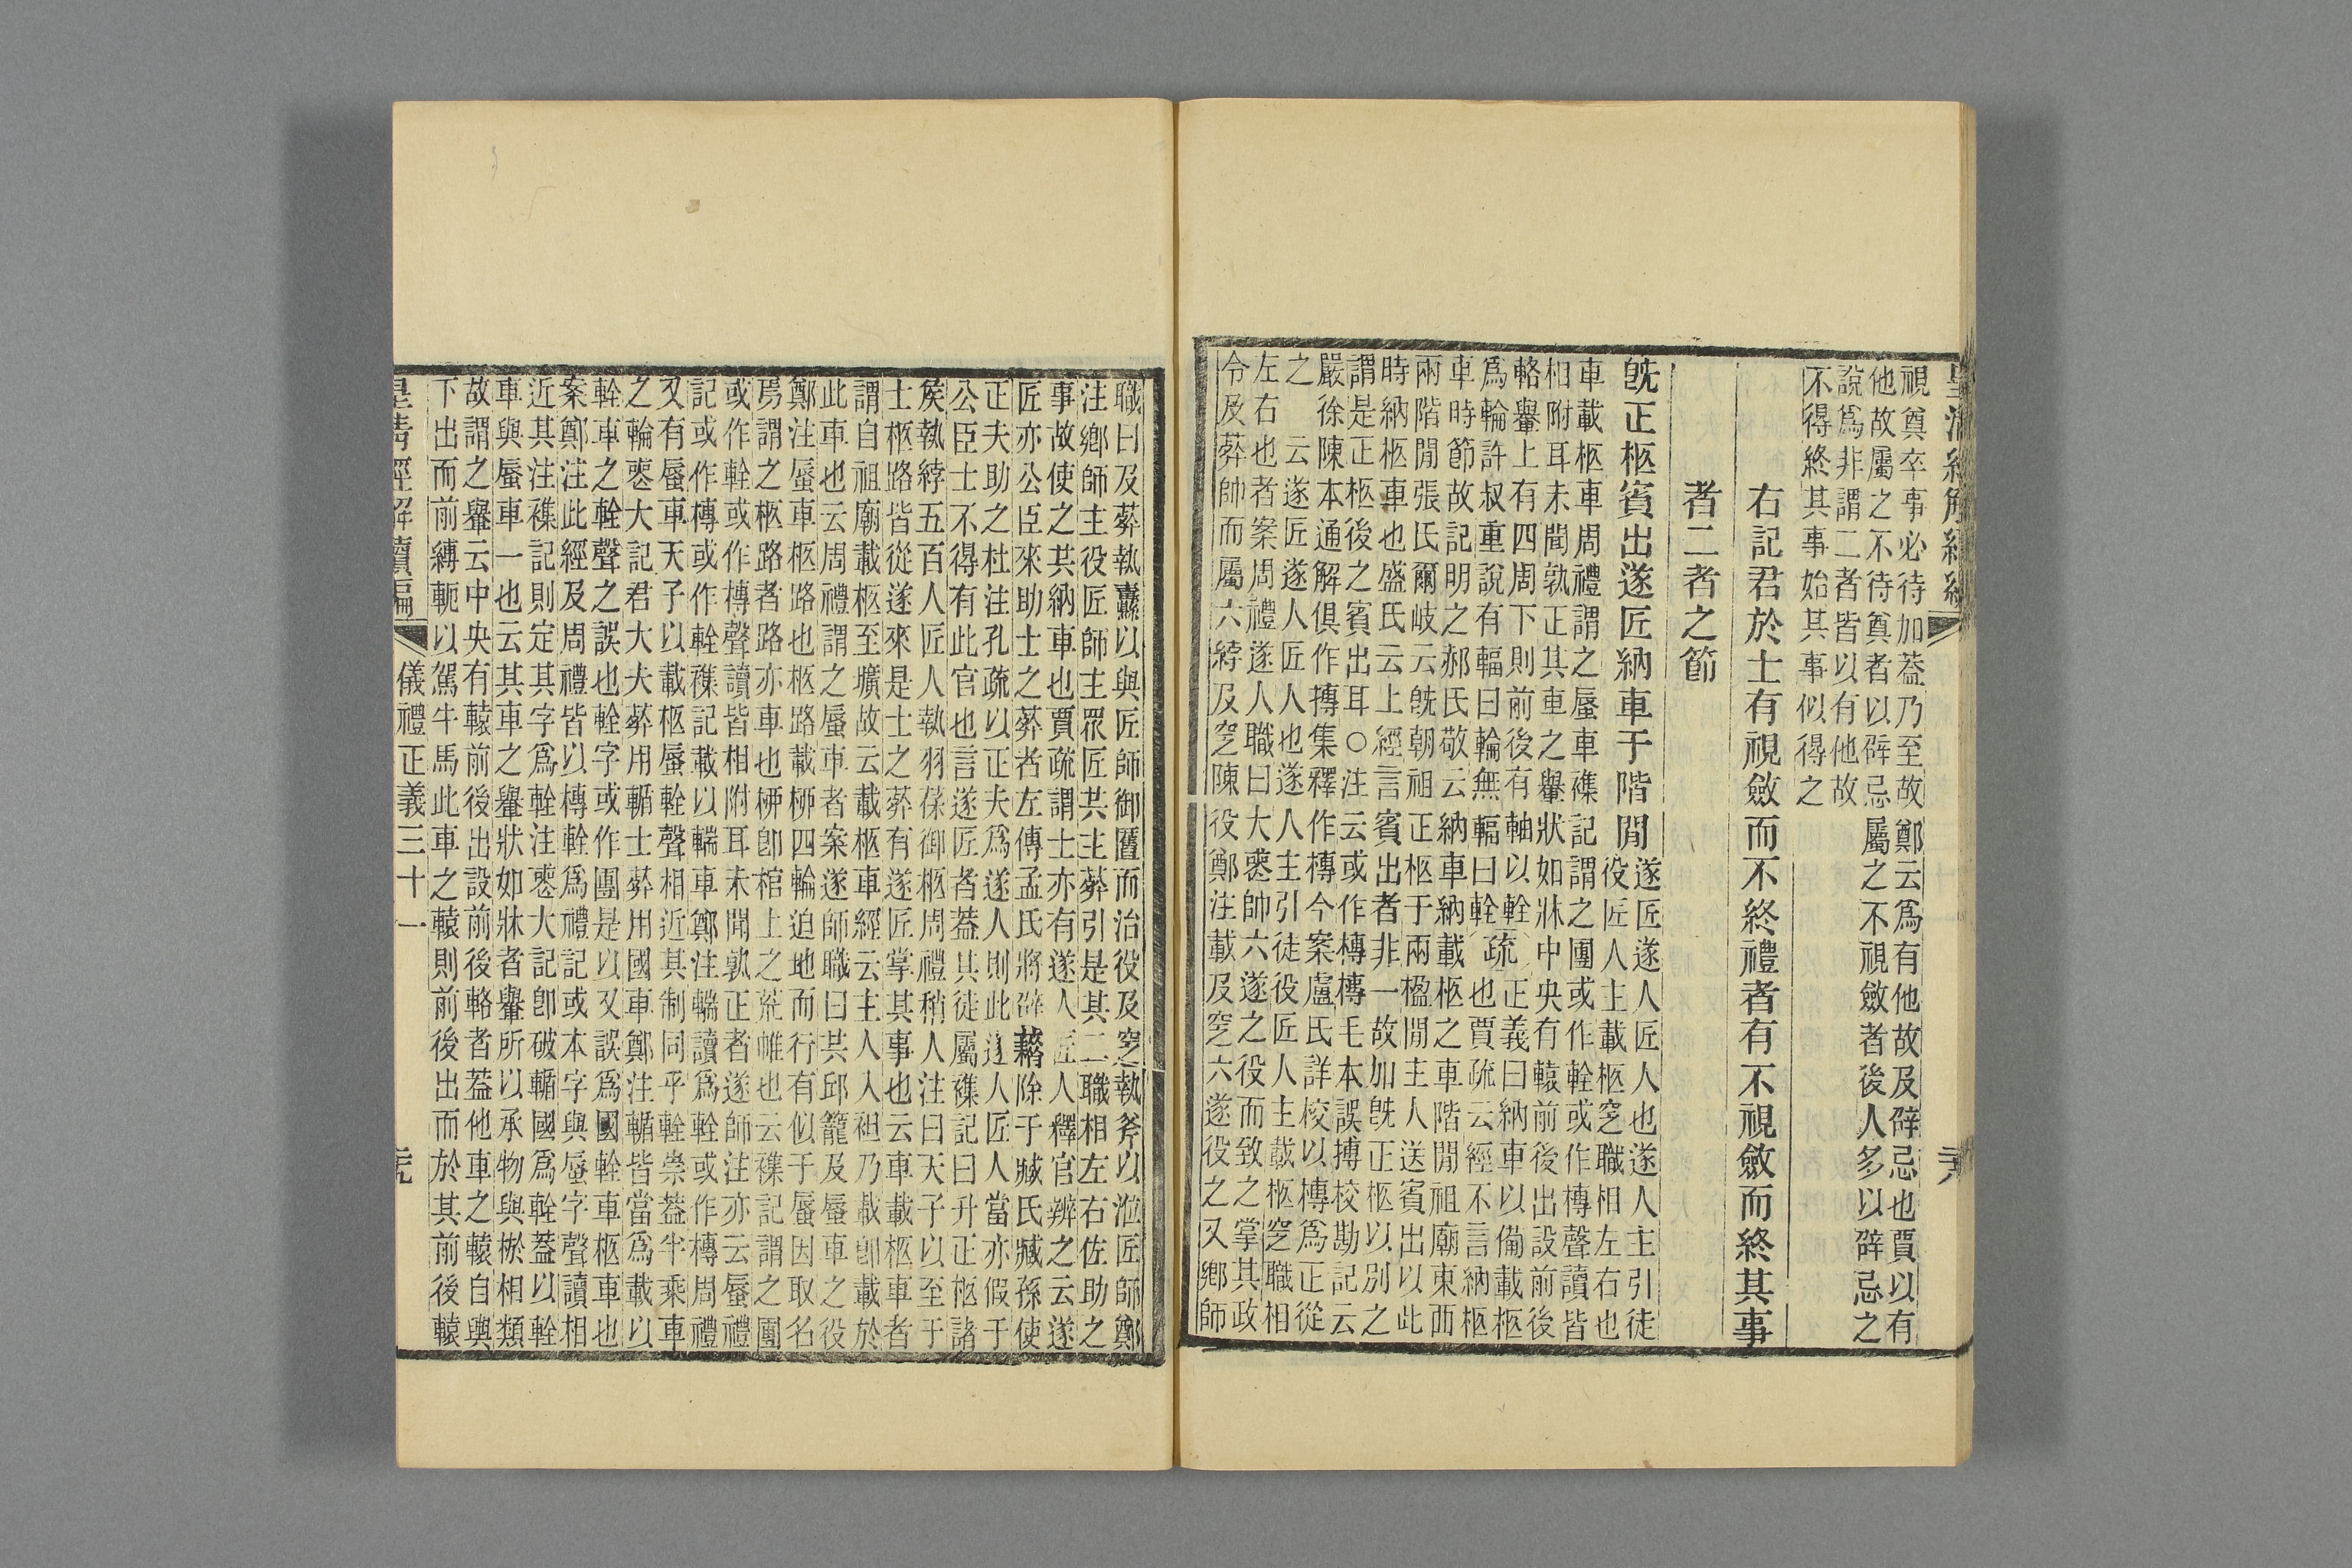 皇清經解續編
視奠卒事必待加蓋乃至故鄭云爲有他故及辟忌也賈以有
他故屬之不待奠者以辟忌屬之不視斂者後人多以辟忌之
說爲非謂二者皆以有他故
不得終其事始其事似得之
右記君於士有視斂而不終禮者有不視斂而終其事
者二者之節
旣正柩賓出遂匠納車于階閒
遂匠遂人匠人也遂人主引徒
役匠人主載柩窆職相左右也
車載柩車周禮謂之蜃車襍記謂之團或作輇或作槫聲讀皆
相附耳未聞孰正其車之轝狀如牀中央有轅前後出設前後
輅轝上有四周下則前後有軸以輇
爲輪許叔重說有輻曰輪無輻曰輇
疏
正義曰納車以備載柩
也賈疏云經不言納柩
車時節故記明之郝氏敬云納車納載柩之車階閒祖廟東西
兩階閒張氏爾岐云旣朝祖正柩于兩楹閒主人送賓出以此
時納柩車也盛氏云上經言賓出者非一故加旣正柩以別之
謂是正柩後之賓出耳○注云或作槫槫毛本誤搏校勘記云
嚴徐陳本通解俱作摶集釋作槫今案盧氏詳校以槫爲正從
之 云遂匠遂人匠人也遂人主引徒役匠人主載柩窆職相
左右也者案周禮遂人職曰大喪帥六遂之役而致之掌其政
令及葬帥而屬六綍及窆陳役鄭注載及窆六遂役之又鄉師
職曰及葬執纛以與匠師御匶而治役及窆執斧以涖匠師鄭
注鄉師主役匠師主眾匠共主葬引是其二職相左右佐助之
事故使之其納車也賈疏謂士亦有遂人匠人釋官辨之云遂
匠亦公臣來助士之葬者左傳孟氏將辟藉除于臧氏臧孫使
正夫助之杜注孔疏以正夫爲遂人則此遂人匠人當亦假于
公臣士不得有此官也言遂匠者蓋其徒屬襍記曰升正柩諸
矦執綍五百人匠人執羽葆御柩周禮稍人注曰天子以至于
士柩路皆從遂來是士之葬有遂匠掌其事也云車載柩車者
謂自祖廟載柩至壙故云載柩車經云主人入袒乃載卽載於
此車也云周禮謂之蜃車者案遂師職曰共邱籠及蜃車之役
鄭注蜃車柩路也柩路載柳四輪迫地而行有似于蜃因取名
焉謂之柩路者路亦車也柳卽棺上之荒帷也云襍記謂之團
或作輇或作槫聲讀皆相附耳未聞孰正者遂師注亦云蜃禮
記或作槫或作輇襍記載以輲車鄭注輲讀爲輇或作槫周禮
又有蜃車天子以載柩蜃輇聲相近其制同乎輇崇蓋半乘車
之輪喪大記君大夫葬用輴士葬用國車鄭注輴皆當爲載以
輇車之輇聲之誤也輇字或作團是以又誤爲國輇車柩車也
案鄭注此經及周禮皆以槫輇爲禮記或本字與蜃字聲讀相
近其注襍記則定其字爲輇注喪大記卽破輴國爲輇蓋以輇
車與蜃車一也云其車之轝狀如牀者轝所以承物與棜相類
故謂之轝云中央有轅前後出設前後輅者蓋他車之轅自輿
下出而前縛軛以駕牛馬此車之轅則前後出而於其前後轅
皇清經解續編 儀禮正義三十一